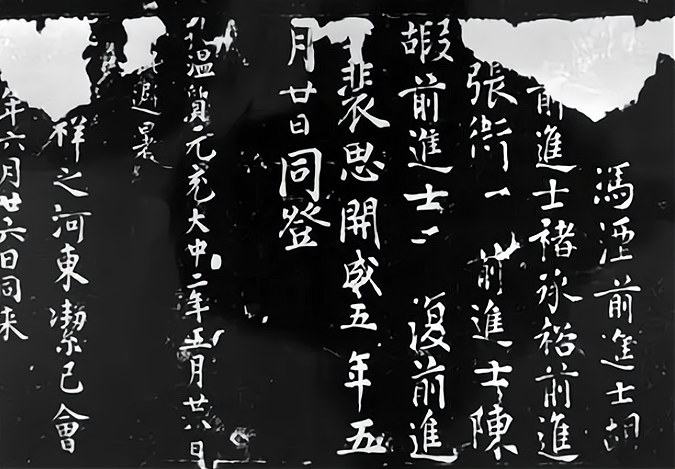 馮 前進士胡
前進士褚承裕前進
張 一 前進士陳
嘏前進士二 復前進
裴思開成五年五
月廿日同登
溫質元充大中二年五月廿八日
避暑
祥之河東潔己會
年六月廿六日同来